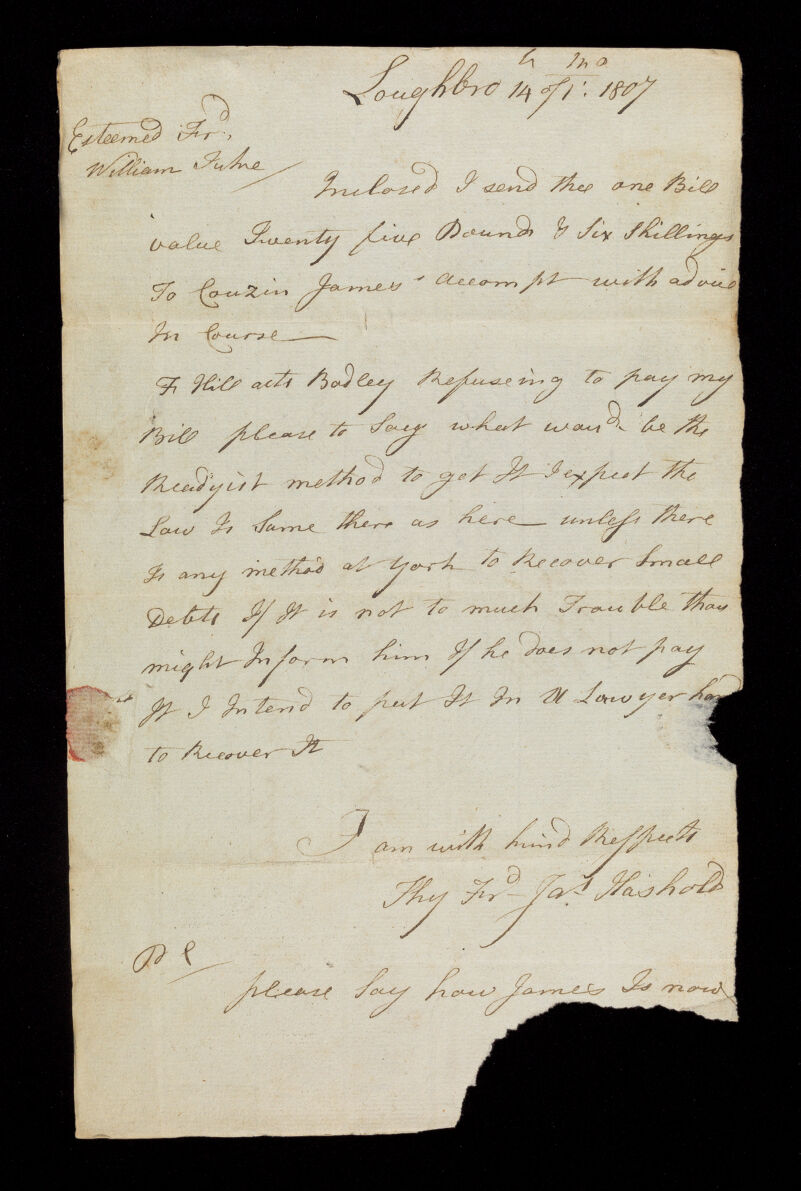 Loughbro 14th of 1st mo 1807
Esteemed Frd.
William Tuke
Inclosed I send thee one Bill
value Twenty five Pounds & Six Shillings
To Couzin James' accompt with advice
In Course
Hill Badley Refuseing to pay my
Bill please to Say what woud be the
Readyist method to get It I expect the
Law Is Same there as here unless there
Is any method at York to Recover Small
Debts If It is not to much Trouble thou
might Inform him If he does not pay
It I Intend to put It In a Lawyer hand
to Recover It
I am with kind Respects
Thy Frd Jas. Hashold
please Say how James Is now